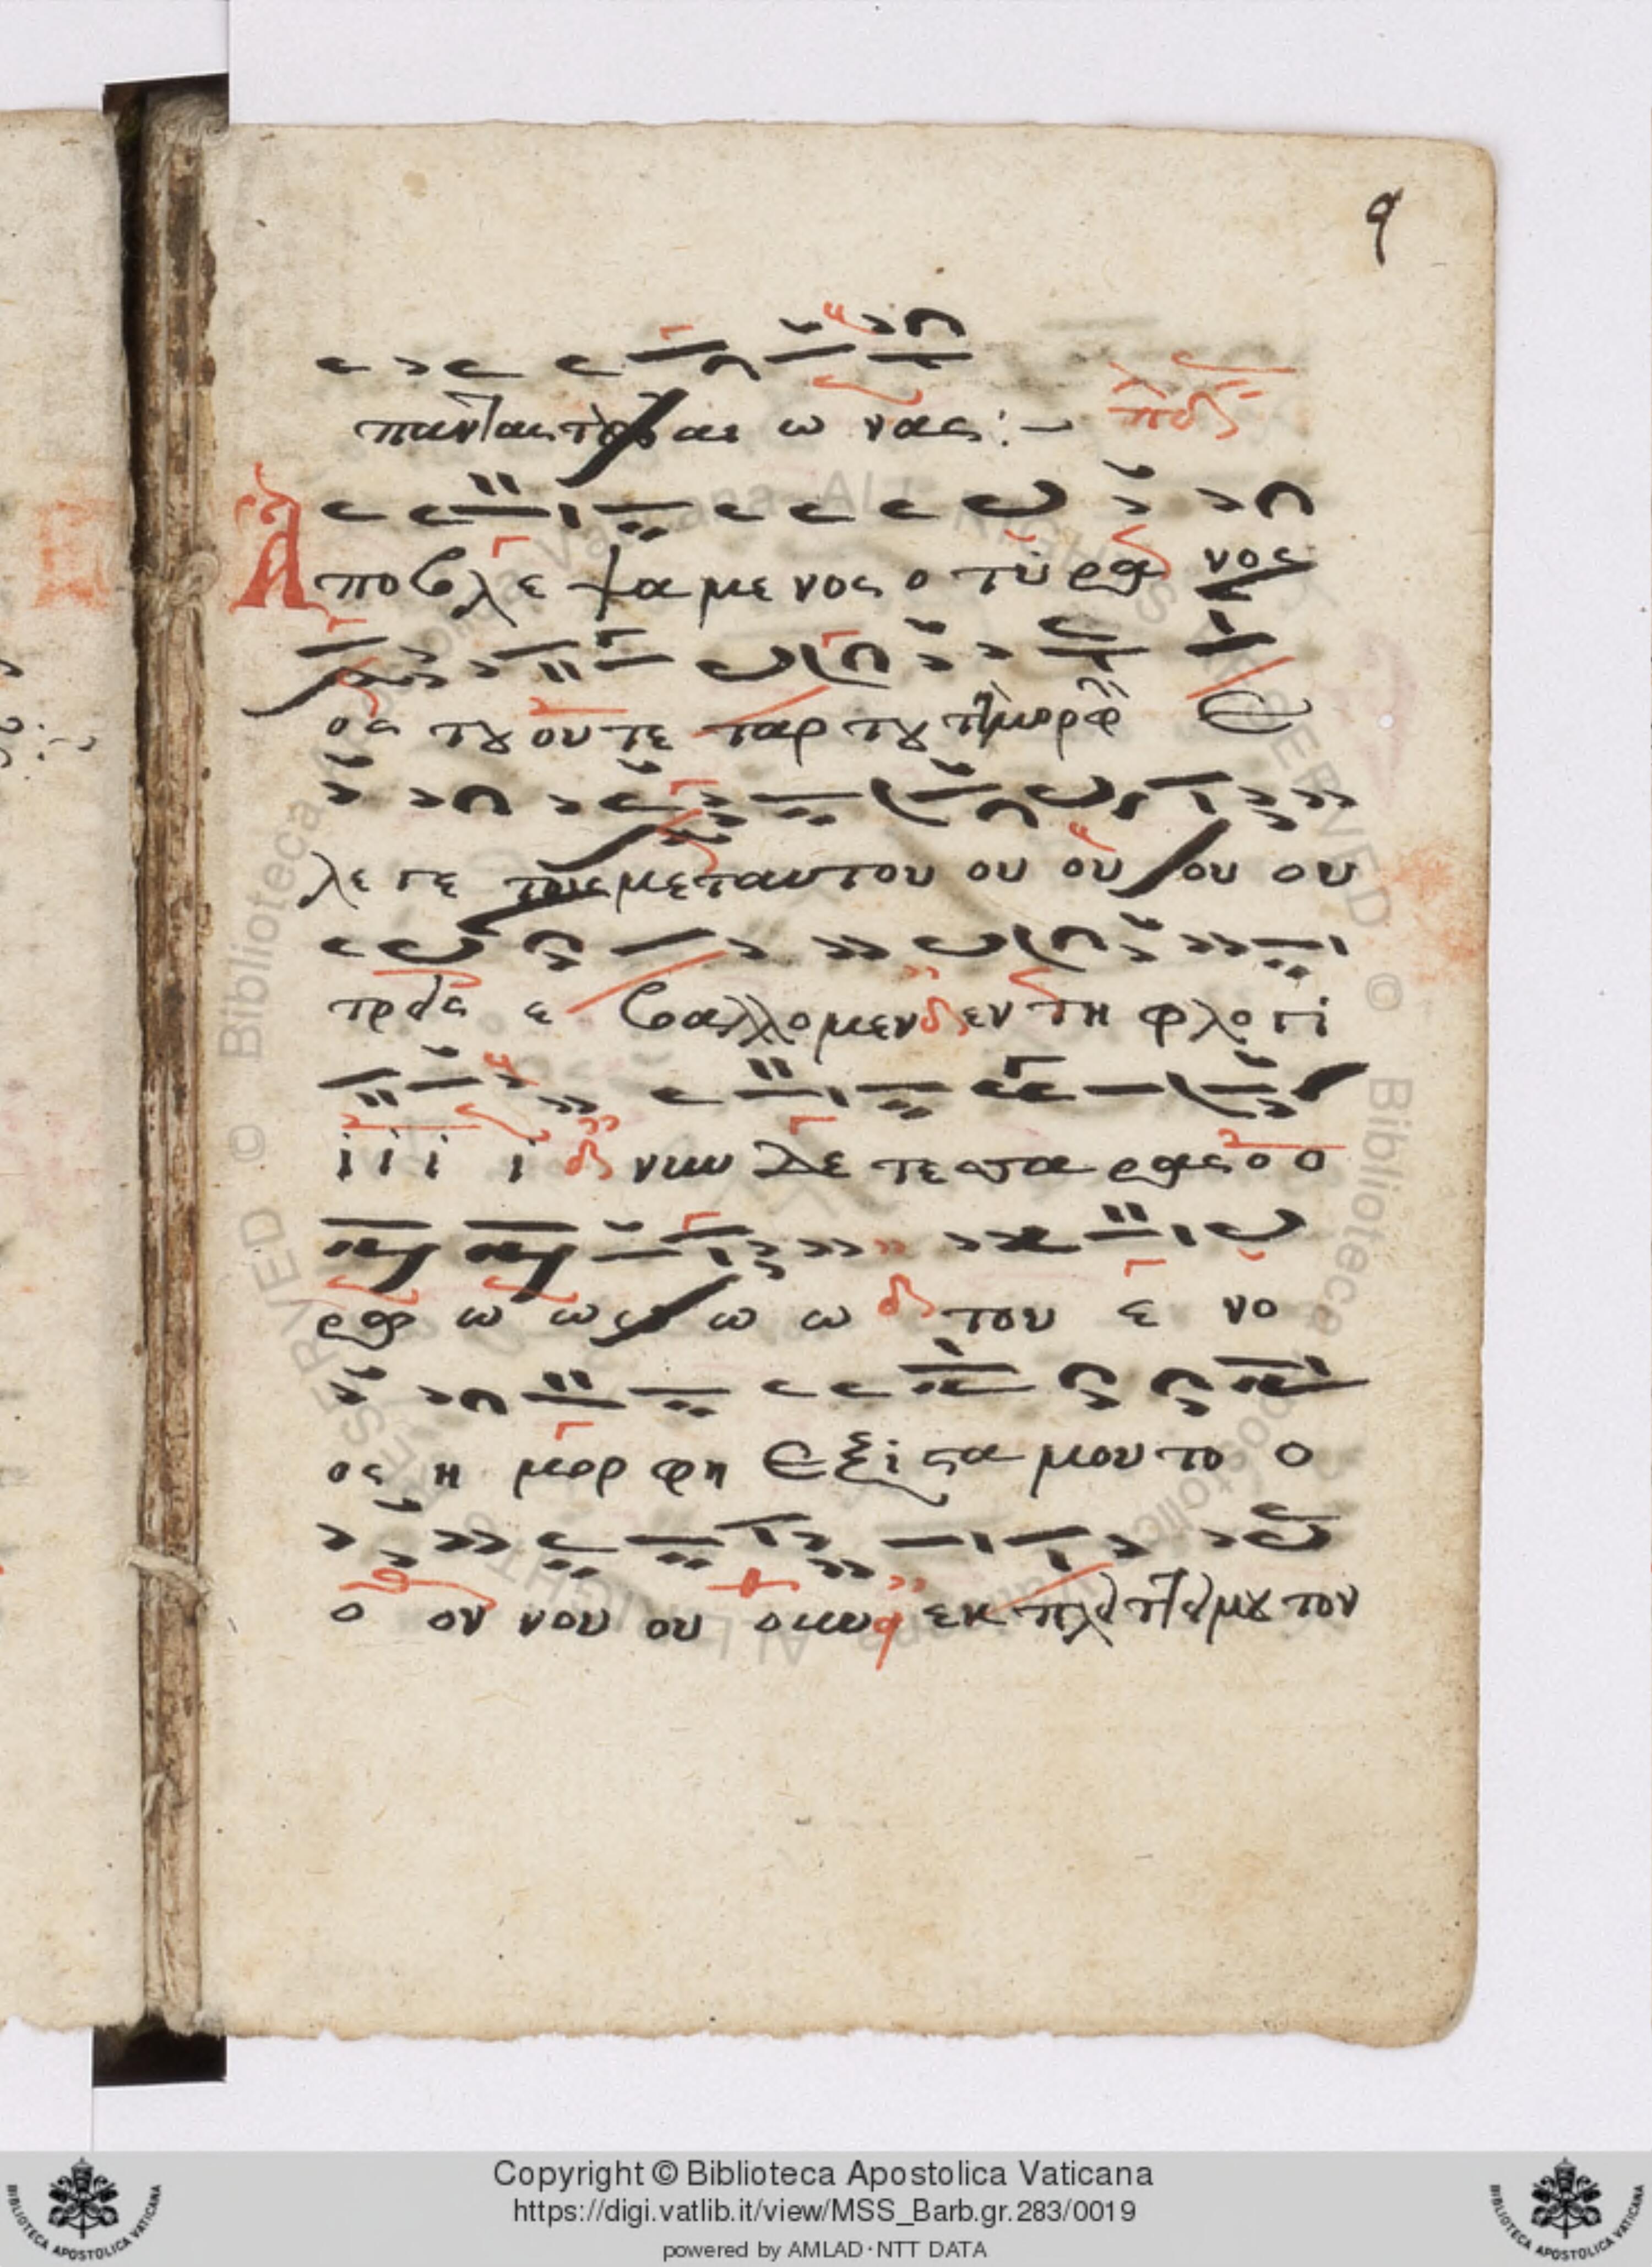 9
παντας τους αι ω νας :-
Αποβλε ψα μενος ο τυ ρα νος
ος του ου τε ταρ του τη μορφη Ε
λε γε τοις μετ αυτου ου ου ου ου
τρεις ε βαλλομεν εν τη φλογι
ι ι ι ι νυν δε τεσσα ρας ο ο
ρω ω ω ω ω ω του ε νο
ος η μορ φη Εξιστα μου το ο
ο ον νου ου εκ πλητ μου τον
Copyright © Biblioteca Apostolica Vaticana
https://digi.vatlib.it/view/MSS_Barb.gr.283/0019
powered by AMLAD · NTT DATA